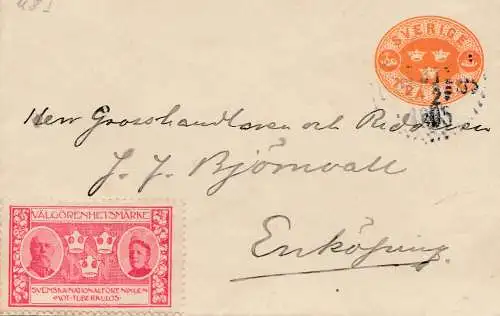 SVERIGE
TVÅ
2
Herr Grosshandlaren och Riddaren
J. J. Björnvall
Enköping
VÄLGÖRENHETSMÄRKE
SVENSKA NATIONALFÖRENINGEN
MOT TUBERKULOS